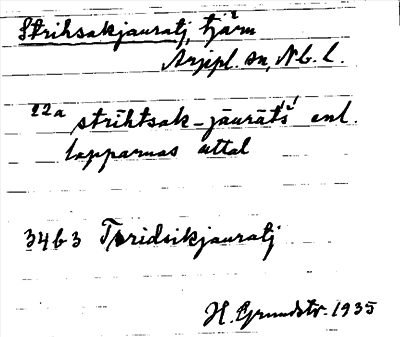 Strihsakjauratj, tjärn
Arjepl. sn, Nb. l.
22a strīhtsak-jāurāts̀ enl.
lapparnas uttal
34b3 Tsridsikjauratj
H. Grundstr. 1935